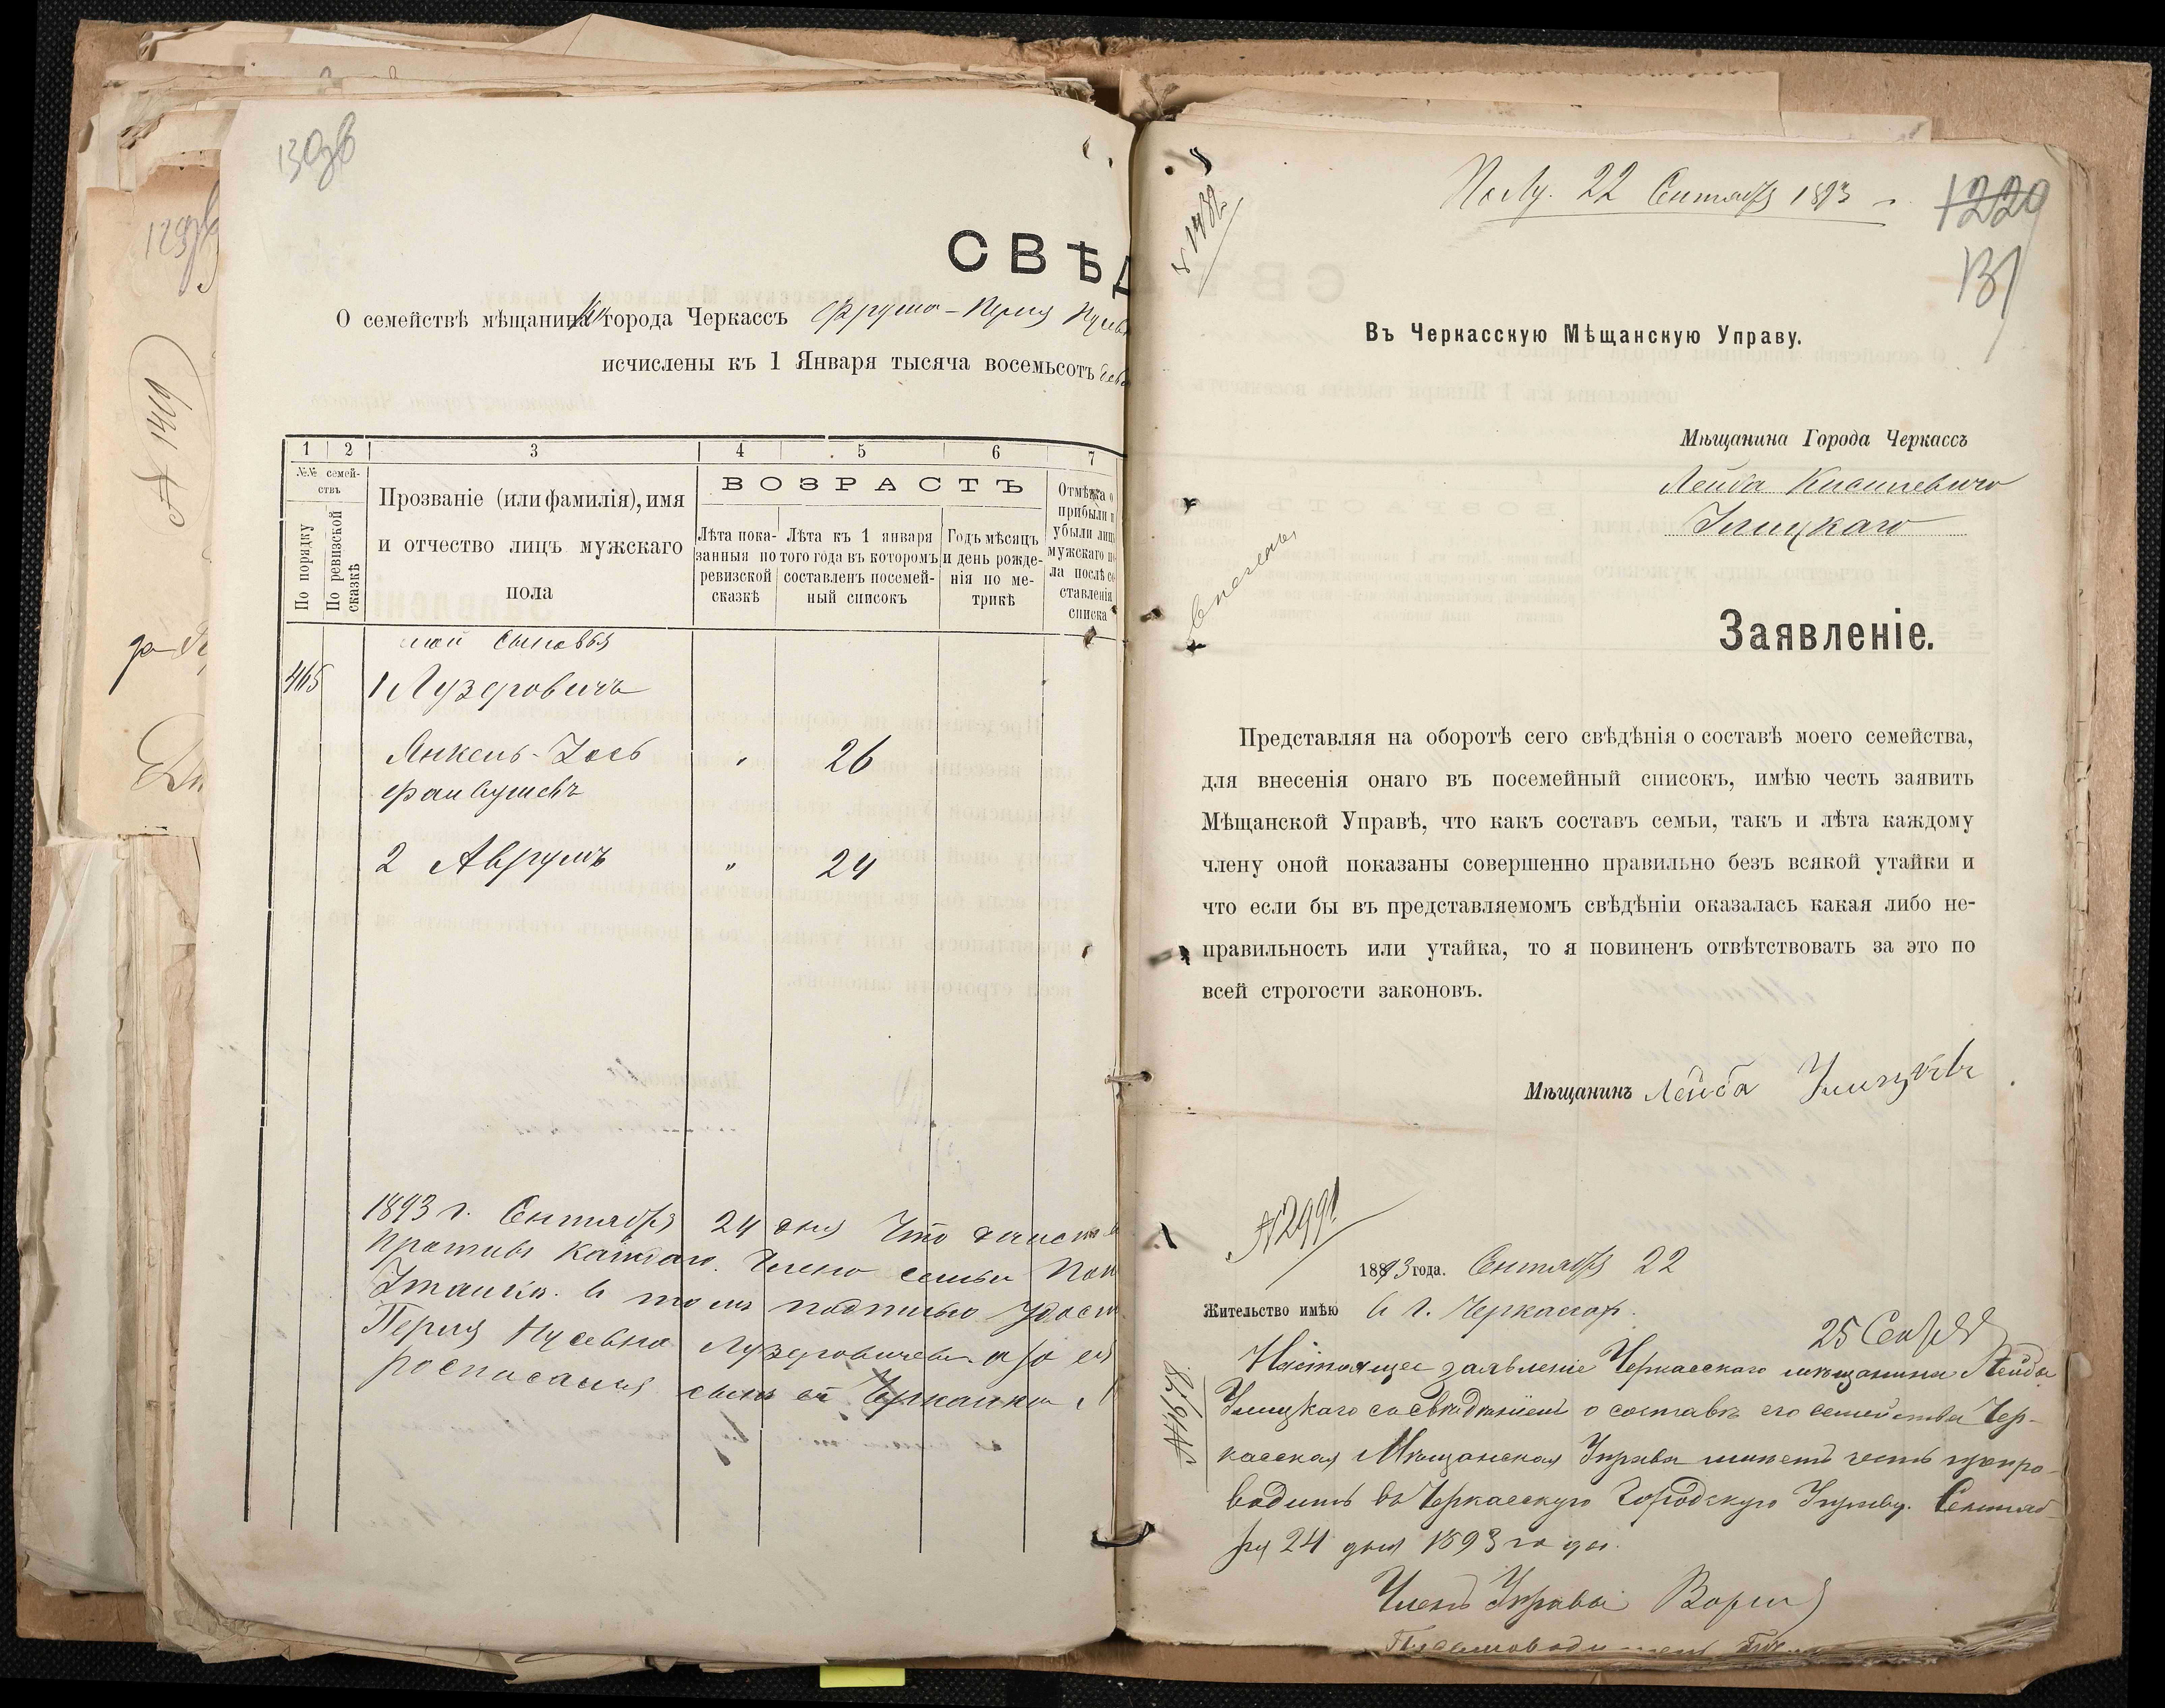 130об
СВѢД
О семействѣ мѣщанина города Черкассъ Фрума-Перля Нусев
исчислены къ 1 Января тысяча восемьсотъ дево
1 2 3 4 5 6 7
№№ семей-
ствъ
По порядку
По ревизской
сказкѣ
Прозваніе (или фамилія), имя
и отчество лицъ мужскаго
пола
ВОЗРАСТЪ
Лѣта пока-
занныя по
ревизской
сказкѣ
Лѣта къ 1 января
того года въ которомъ
составленъ посемей-
ный списокъ
Годъ мѣсяцъ
и день рожде-
нія по ме-
трикѣ
Отмѣтка о
прибыли и
убыли лицъ
мужскаго по
ла послѣ со
ставленія
списка
сыновья
465 1 Лузеровичъ
Янкель-Іось " 26
Файвушевъ
2 Аврумъ " 24
1893 г. Сентября 24 дня Что
противъ каждаго члена семьи пок
Утайки въ томъ подписью удост
Перля Нусевна Лузеровичева а за ея
росписался сынъ ея
№ 1419
Полу. 22 Сентября 1893 г.
1229
131
Въ Черкасскую Мѣщанскую Управу.
Мѣщанина Города Черкассъ
Лейба Кисилевича
Улицкаго
Заявленіе.
Представляя на оборотѣ сего свѣдѣнія о составѣ моего семейства,
для внесенія онаго въ посемейный списокъ, имѣю честь заявить
Мѣщанской Управѣ, что какъ составъ семьи, такъ и лѣта каждому
члену оной показаны совершенно правильно безъ всякой утайки и
что если бы въ представляемомъ свѣдѣніи оказалась какая либо не-
правильность или утайка, то я повиненъ отвѣтствовать за это по
всей строгости законовъ.
Мѣщанинъ Лейба Улицкій
№ 2991
1893 года. Сентября 22
Жительство имѣю в г. Черкассах.
25 Сент
Настоящее заявленіе Черкасскаго мѣщанина Лейбы
Улицкаго со свѣдѣніем о составѣ его семейства Чер-
касская Мѣщанская Управа имѣетъ честь препро-
водить въ Черкасскую Городскую Управу. Сентяб-
ря 24 дня 1893 года.
Членъ Управы